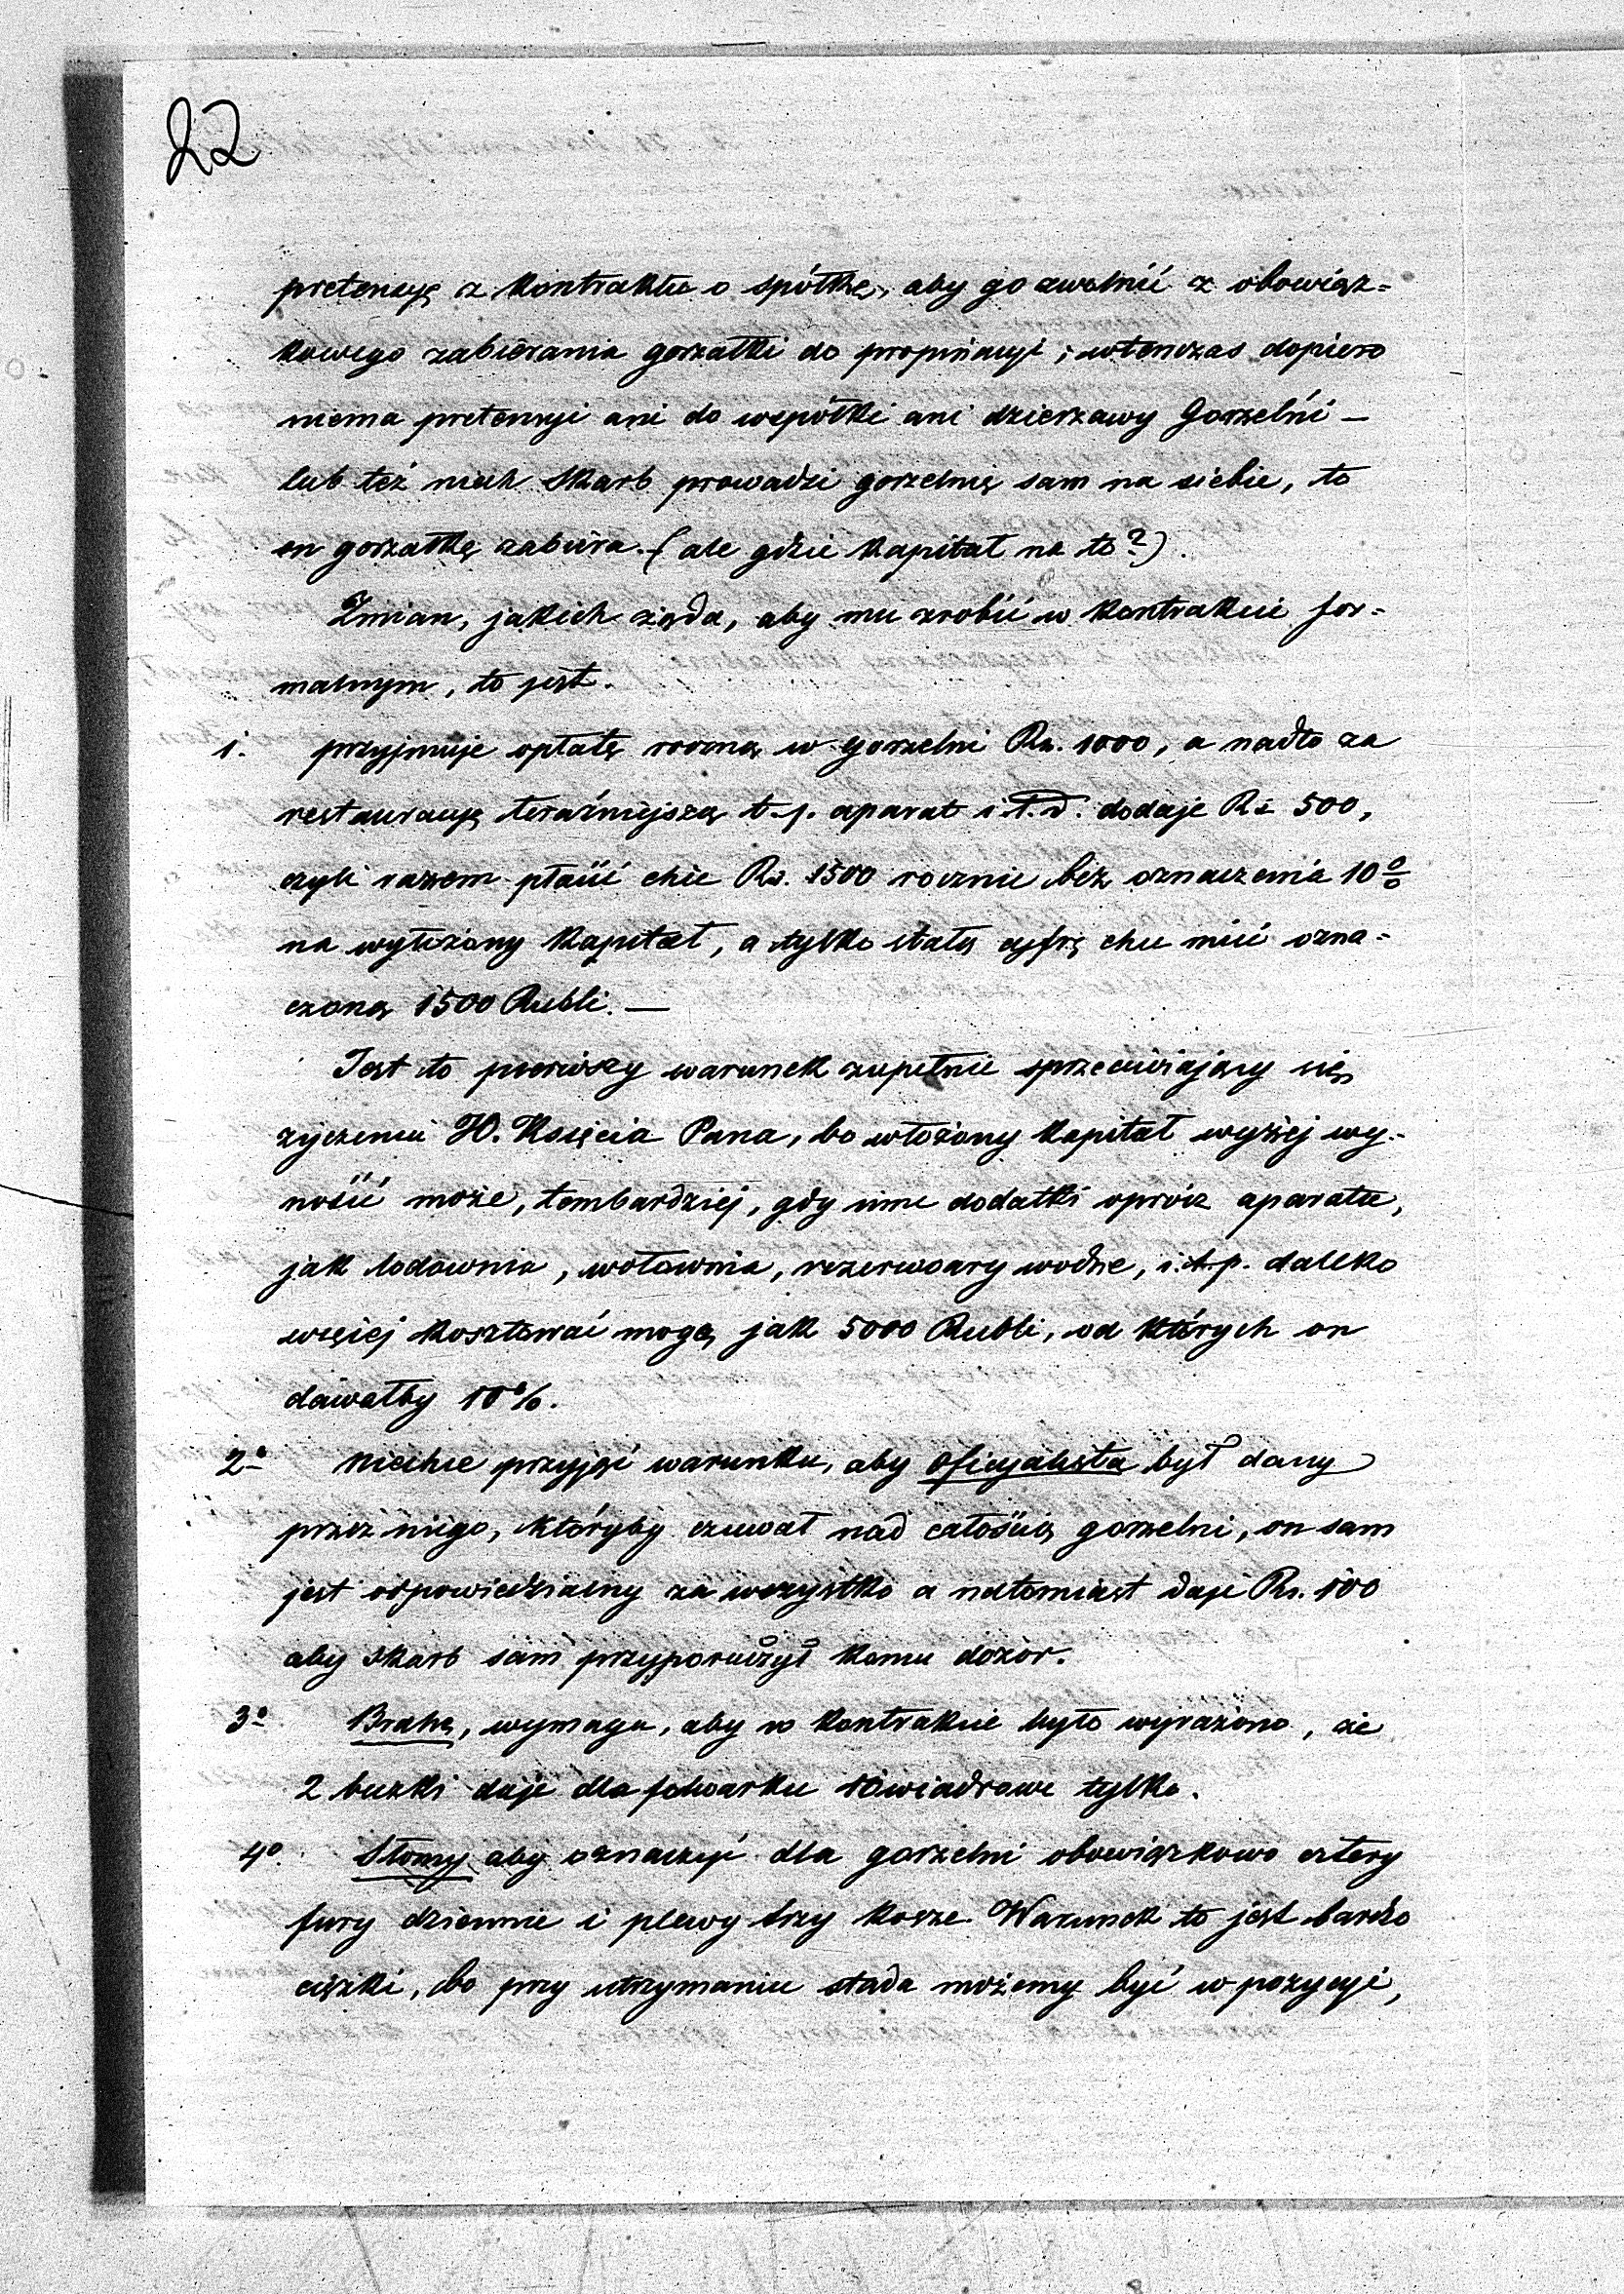 22
pretensyę z kontraktu o spółkę, aby go zwolnić z obowiąz-
kowego zabierania gorzałki do propinacyi; wtenczas dopiero
niema pretensyi ani do wspólki ani dzierzawy Gorzelni —
lub też niech Skarb prowadzi gorzelnię sam na siebie, to
on gorzałkę zabiera. (ale gdzie kapitał na to?).
Zmian, jakich żąda, aby mu zrobić w kontrakcie for-
malnym, to jest.
1. przyjmuje opłatę roczną w gorzelni Rs. 1000, a nadto za
restauracyę teraźniejszą t.j. aparat i.t.d. dodaje Rs 500,
czyli razem płacić chce Rs. 1500 rocznie bez oznaczenia 10%
na wyłożony kapitał, a tylko stałą cyfrę chce mieć ozna-
czoną 1500 Rubli. —
Jest to pierwszy warunek zupełnie sprzeciwiający się
życzeniu JO. Księcia Pana, bo włożony kapitał wyżej wy-
nosić może, tembardziej, gdy inne dodatki oprócz aparatu,
jak lodownia, wołownia, rezerwoary wodne, i.t.p. daleko
więcej kosztować mogą jak 5000 Rubli, od których on
dawałby 10%.
2º niechce przyjąć warunku, aby oficyalista był dany
przez niego, któryby czuwał nad całością gorzelni, on sam
jest odpowiedzialny za wszystko a natomiast daje Rs. 100
aby skarb sam przyporuczył komu dozór.
3º Brahę, wymaga, aby w kontrakcie było wyrażono, że
2 beczki daje dla folwarku 10 wiadrowe tylko.
4º. Słomy aby oznaczyć dla gorzelni obowiązkowo cztery
fury dziennie i plewy trzy kosze. Warunek to jest bardzo
ciężki, bo przy utrzymaniu stada możemy być w pozycyi,